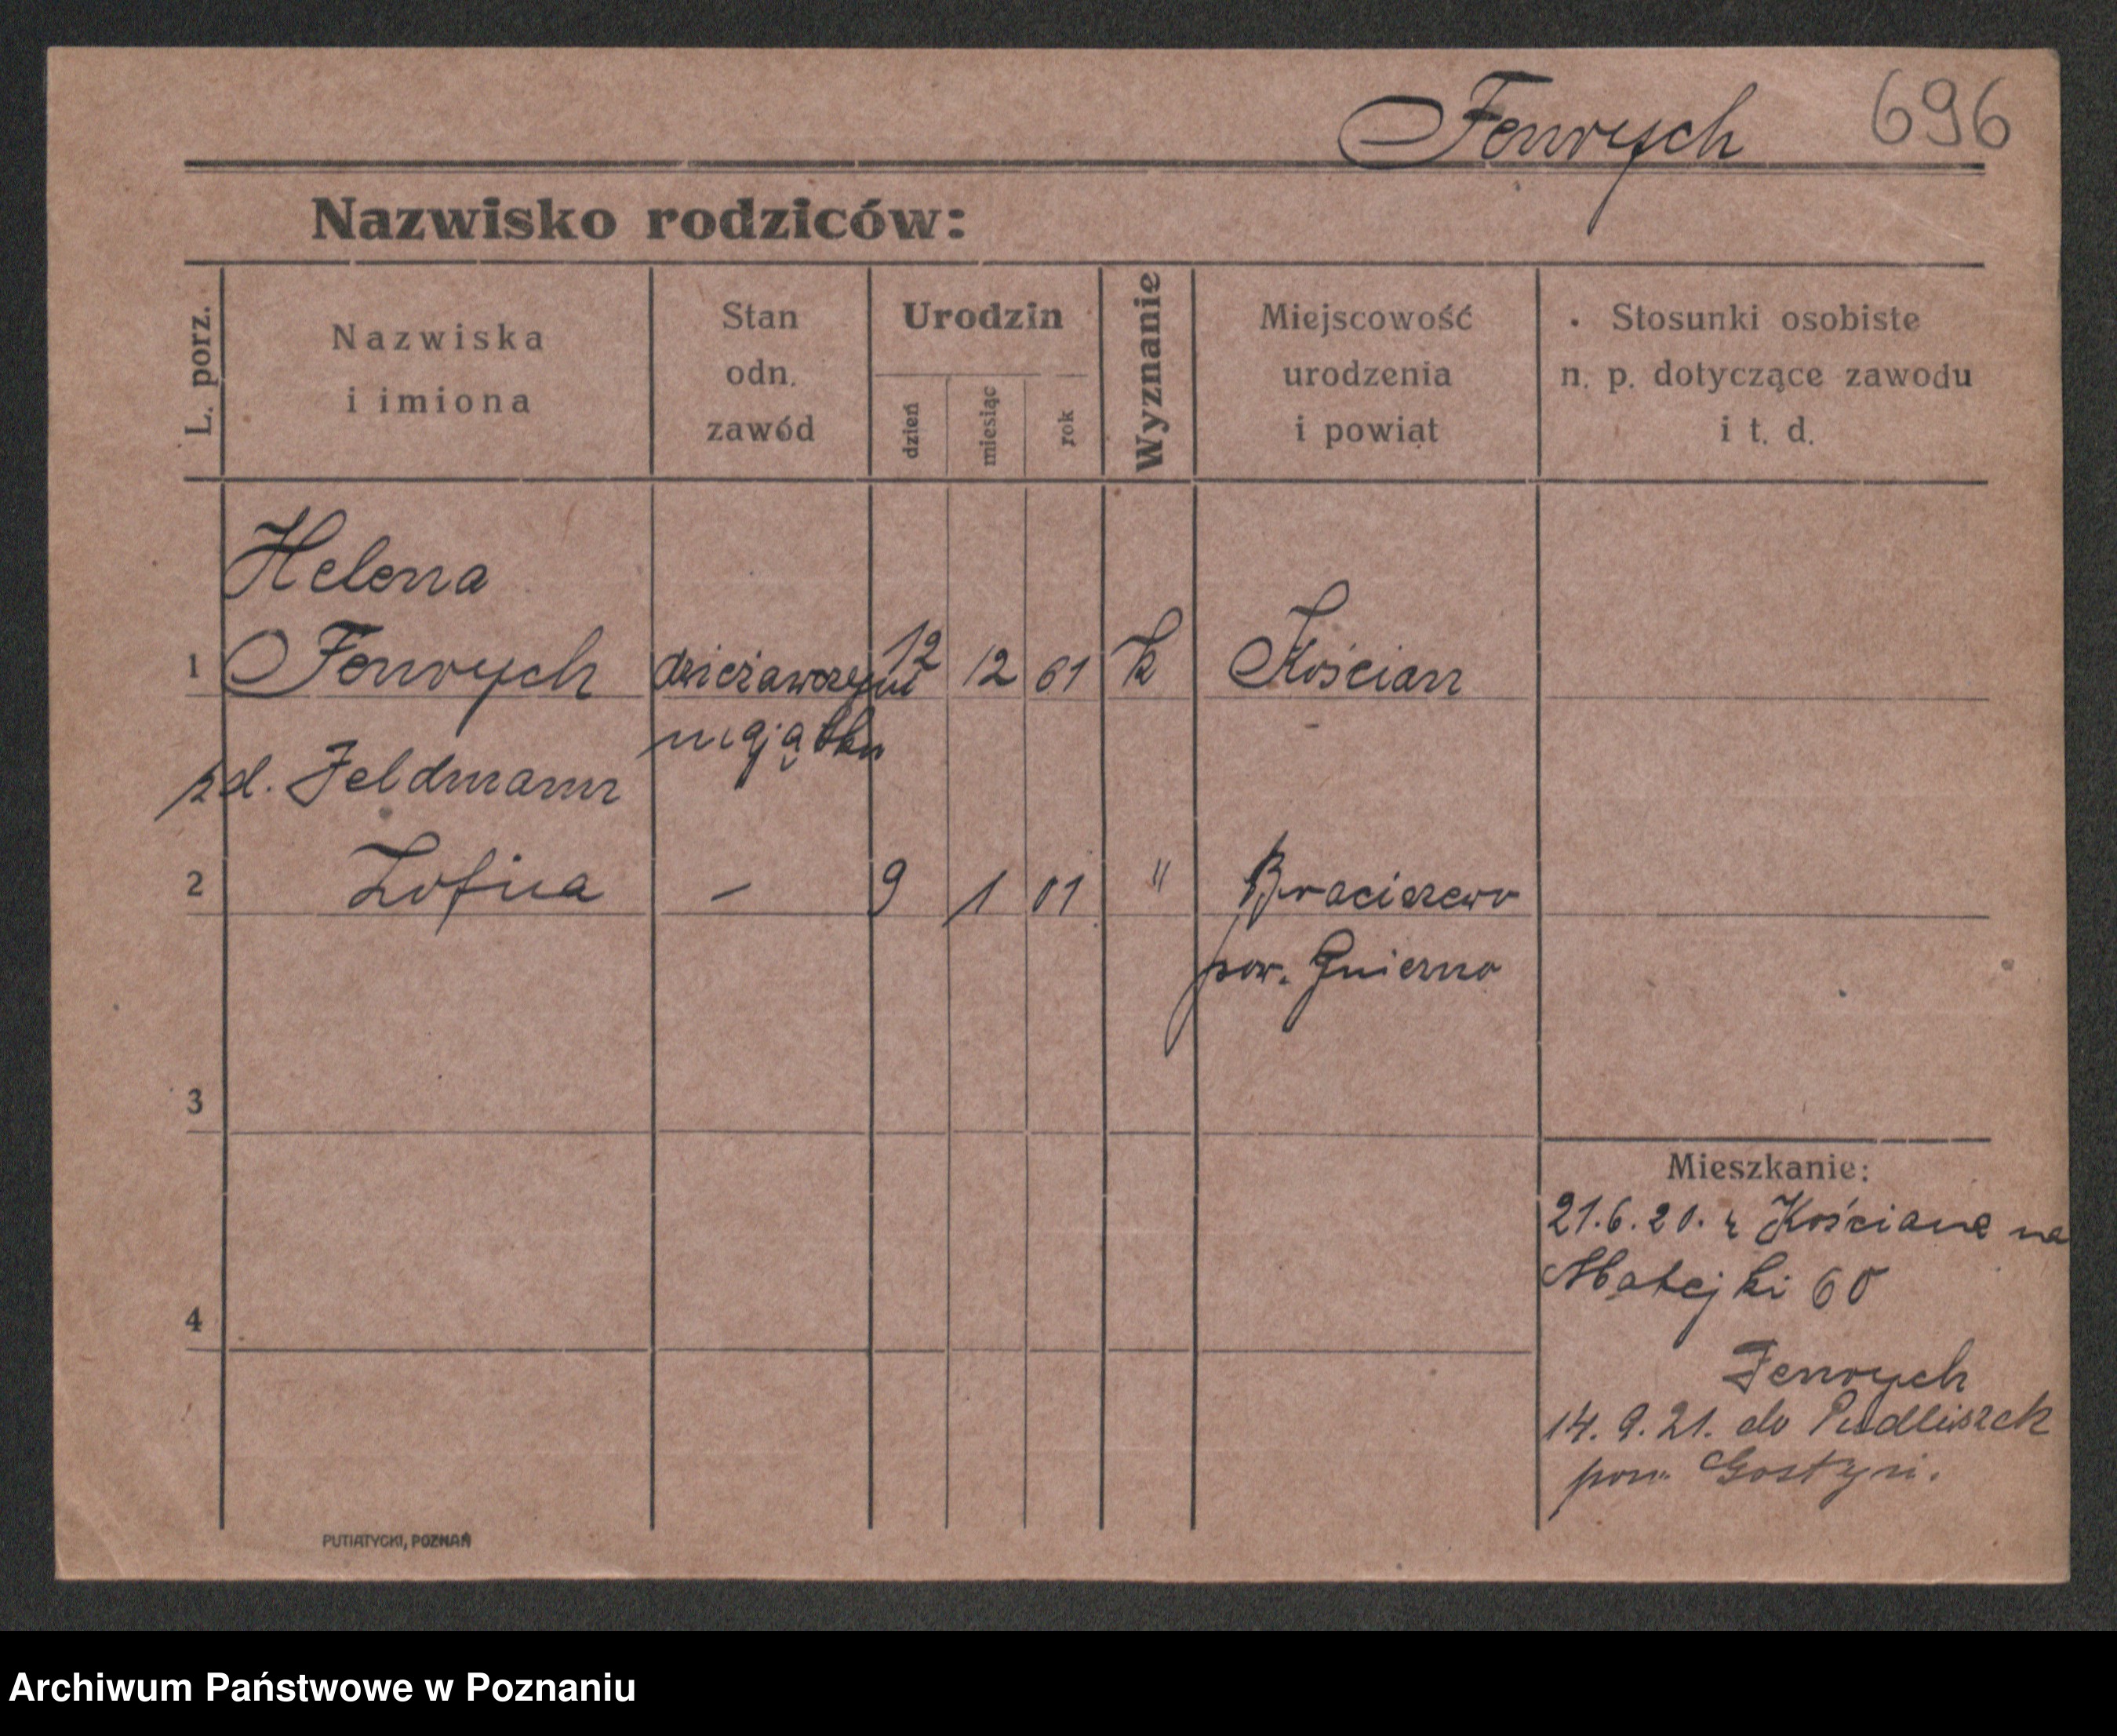 Fenrych 696
Nazwisko rodziców:
L. porz.
Nazwiska
i imiona
Stan
odn.
zawód
Urodzin
dzień
miesiąc
rok
Wyznanie
Miejscowość
urodzenia
i powiat
Stosunki osobiste
n. p. dotyczące zawodu
i t. d.
Helena
1 Fenrych dzierżawczyni 12 12 61 k Kościan
majątku
zd. Feldmann
2 Zofja – 9 1 01 " Braciszewo
pow. Gniezno
3
Mieszkanie:
21.6.20. z Kościana na
Matejki 60
4
Fenrych
14. 9. 21. do Pudliszek
pow. Gostyń.
PUTIATYCKI, POZNAŃ
Archiwum Państwowe w Poznaniu